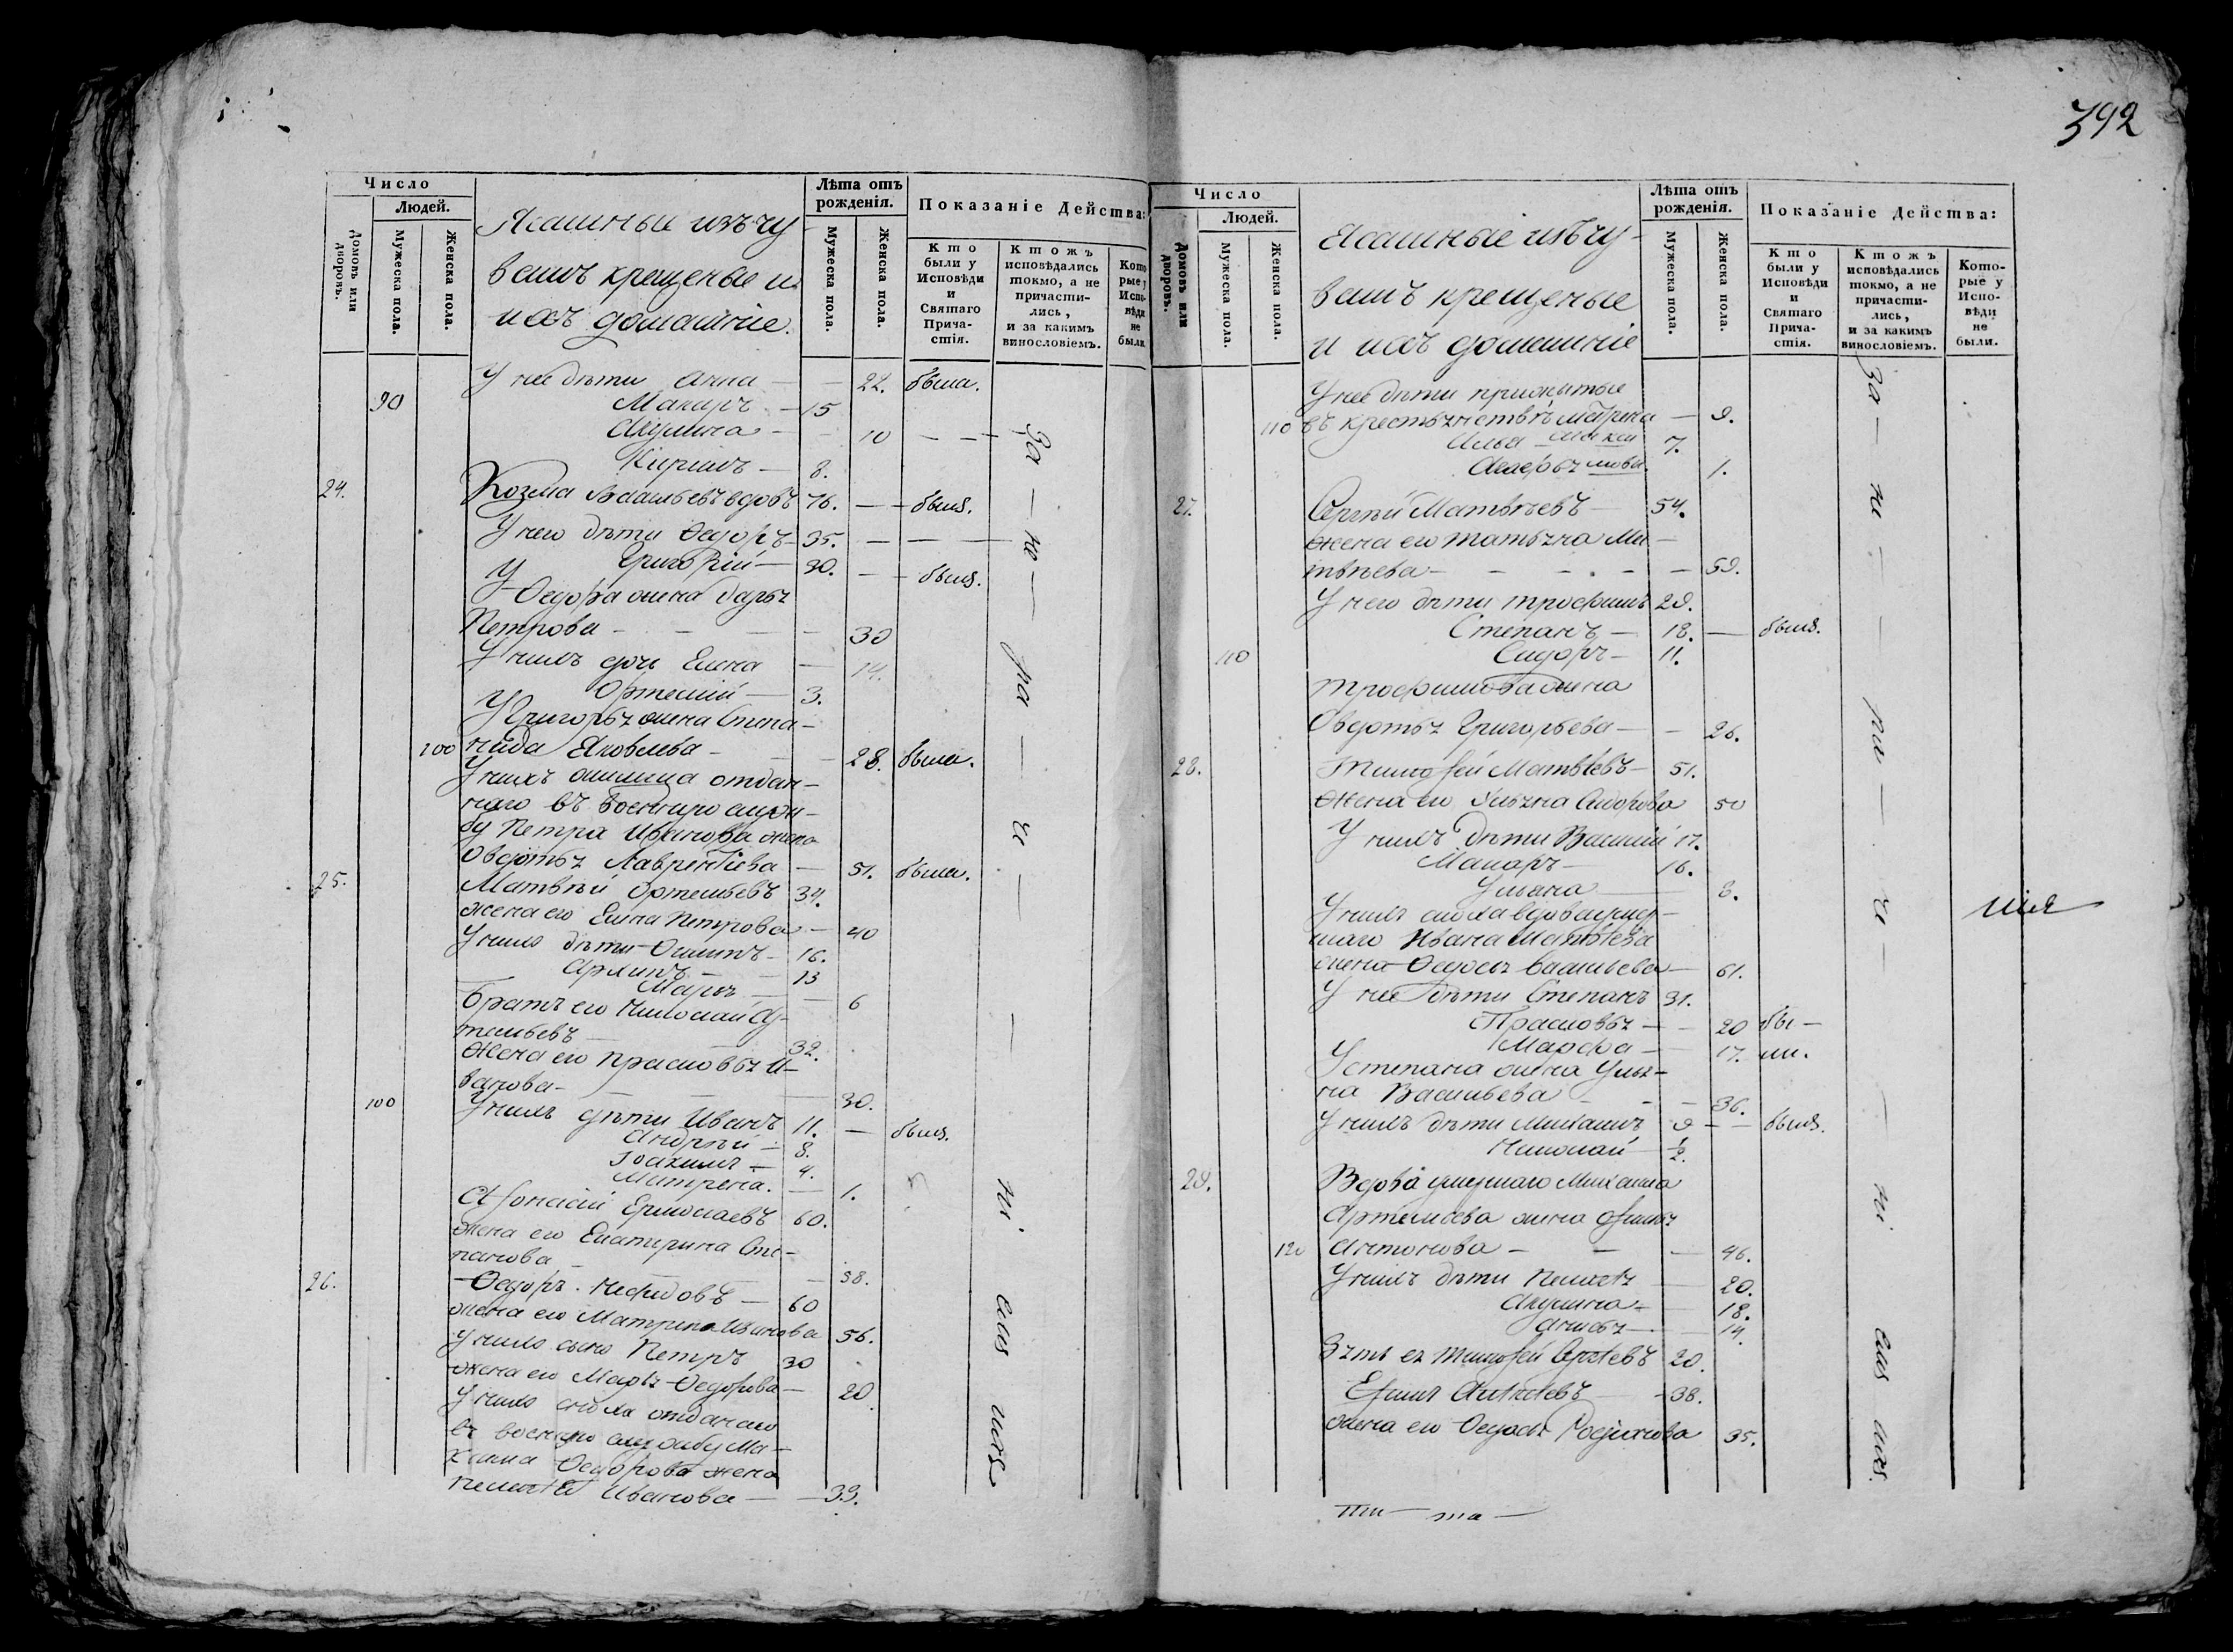 392
Число
Людей.
Домовъ или дворовъ.
Мужеска пола.
Женска пола.
Ясашные изъ чу-
вашъ крещеные и
ихъ домашніе.
Лѣта отъ рожденія.
Мужеска пола.
Женска пола.
Показаніе Действа:
Кто были у Исповѣди и Святаго Прича-стія.
Ктожъ исповѣдались токмо, а не причасти-лись, и за какимъ винословіемъ.
Кото рые у Испо- вѣди не были.
У нее дѣти Анна — — 22. была.
90 Макаръ — 15
Акулина — — 10 — —
Кирилъ — 8.
24. Козма Васильевъ вдовъ 76. — — былъ.
У него дѣти Ѳедоръ — 35. — —
Григорій — 30. — — былъ.
У Ѳедора жена Дарья
Петрова — — — — 30
У нихъ дочь Елена — 14.
Ортемій — 3.
У Григорья жена Степа-
100 нида Яковлева — — 28. была.
У нихъ отдан-
наго въ военную служ-
бу Петра Иванова жена
Овдотья Лаврентіева — 51. была.
25. Матвѣй Ортемьевъ 34.
жена его Елена Петрова — 40
У нихъ дѣти Осипъ — 16.
Архипъ — 13
Марья — — 6
Братъ его Николай А-
темьевъ — — 32.
Жена его Прасковья И-
ванова — — — 30.
100 У нихъ дѣти Иванъ 11. — былъ.
Андрей — 8.
Іоакимъ — 4.
Матрена. — 1.
Афонасій Ермолаевъ 60.
жена его Екатерина Сте-
панова — — 58.
26. Ѳедоръ Нефидовъ — 60
жена его Матрена Иванова 56.
У нихъ сынъ Петръ 30
жена его Марья Ѳедорова — 20.
У нихъ сноха отданаго
въ военную службу Ма-
Ѳедорова жена
Пелагея Иванова — — 33.
За — не — ра — че — ні емъ ихъ
Число
Людей.
Домовъ или дворовъ.
Мужеска пола.
Женска пола.
Ясашные изъ чу-
вашъ крещеные
и ихъ домашніе
Лѣта отъ рожденія.
Мужеска пола.
Женска пола.
Показаніе Действа:
Кто были у Исповѣди и Святаго Прича-стія.
Ктожъ исповѣдались токмо, а не причасти-лись, и за какимъ винословіемъ.
Кото-рые у Испо-вѣди не были.
У нее дѣти прижитые
110 въ Матрена — 9.
Илья 7.
1.
27. Сергѣй Матвѣевъ — 54.
жена его Татьяна Ма-
твѣева — — — — — 59.
У него дѣти Трофимъ 29.
Степанъ — 18. — былъ.
110 Сидоръ — 11.
Трофимова жена
Овдотья Григорьева — — 26.
28. Тимофей Матвѣевъ — 51.
жена его Ульяна Сидорова 50
У нихъ дѣти Василій 17.
Макаръ — 16.
Ульяна — 8.
У нихъ сноха вдова умер-
шаго Ивана Матвѣева
жена Ѳедосья Васильева — 61.
У нее дѣти Степанъ 31.
Прасковья — — 20 бы —
Марфа — 17. ли.
У степана жена Улья-
на Васильева — — — 36.
У нихъ дѣти Михаилъ 9 — — былъ.
Николай — ½.
29. Вдова умершаго Михаила
Артемьева жена
120 Антонова — — — 46.
У нихъ дѣти Пелагея — 20.
Акулина — — 18.
Анисья — — 14.
Зять ея Тимофей Сергѣевъ 20.
Ефимъ — 38.
жена его Ѳедосья Родионова 35.
За — не — ра — че — ні емъ ихъ.